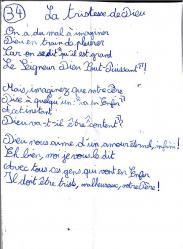 34 La tristesse de Dieu
On a du mal à imaginer
Dieu en train de pleurer
Car on se dit qu'il est grand
Le Seigneur Dieu Tout-Puissant !
Mais, imaginez que notre Père
Dise à quelqu'un : "va en Enfer"
A cet instant
Dieu va-t-il être "content" ?
Dieu nous aime d'un amour éternel, infini !
Eh bien, moi je vous le dit
avec tous ces gens, qui vont en Enfer
Il doit être triste, malheureux, notre Père !